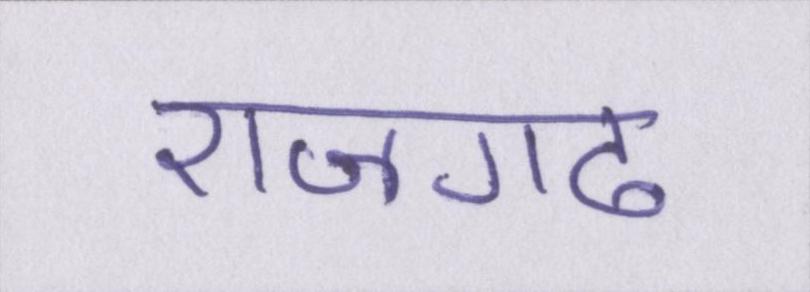 राजगढ